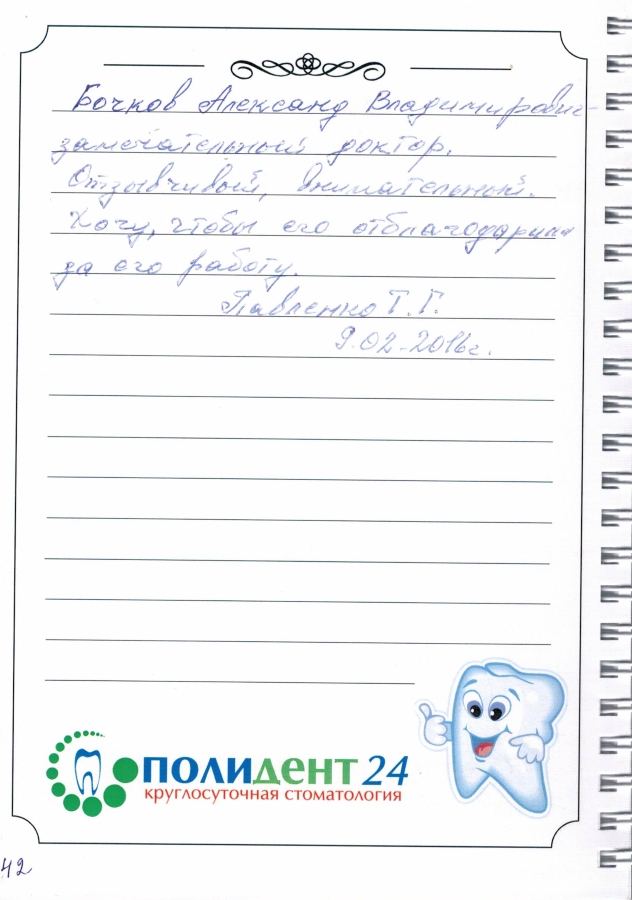 Бочков Александ Владимирович-
замечательный доктор.
Отзывчивый, внимательный.
Хочу, чтобы его отблагодарили
за его работу.
Павленко Т. Г.
9.02-2016г.
ПОЛИДЕНТ 24
круглосуточная стоматология
42